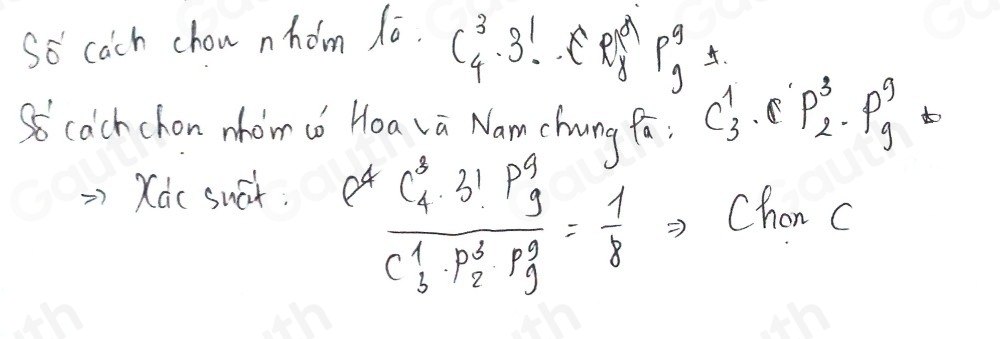 Số cách chọn nhóm là. C³₄ . 3! . P⁹₉
Số cách chọn nhóm có Hoa và Nam chung là: C¹₃ . P³₂ . P⁹₉
=> Xác suất: (C³₄ . 3! P⁹₉)/(C¹₃ . P³₂ . P⁹₉) = 1/8 => Chọn C
Gauth